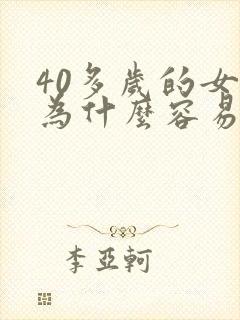 40多歲的女
為什麼容易
李亞軻